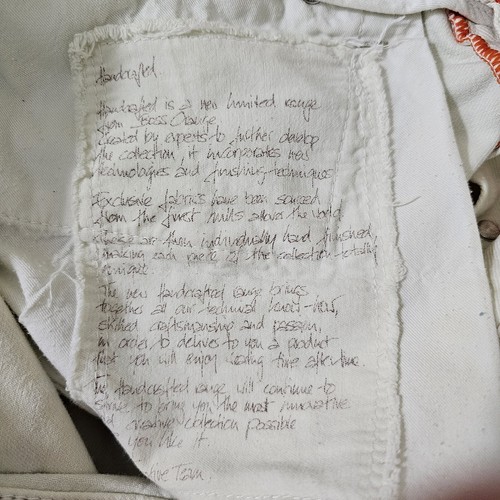 Handcrafted.
Handcrafted is a new limited range
from Boss Orange.
Created by experts to further develop
the collection, it incorporates new
technologies and finishing techniques
Exclusive fabrics have been sourced
from the finest mills allover the world.
These are then individually hand finished,
making each piece of the collection totally
unique.
The new Handcrafted range brings
together all our technical know-how,
skilled craftsmanship and passion,
in order to deliver to you a product
that you will enjoy wearing time after time.
The Handcrafted range will continue to
strive to bring you the most innovative
and creative collection possible
you like it.
Team.